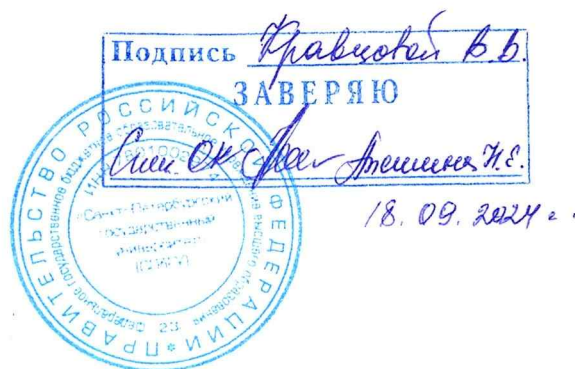 Подпись Кравцовой В.В.
ЗАВЕРЯЮ
Спец. ОК
Н.Е.
18.09.2024 г.
ПРАВИТЕЛЬСТВО РОССИЙСКОЙ ФЕДЕРАЦИИ *
федеральное государственное бюджетное образовательное учреждение высшего образования
«Санкт-Петербургский
государственный
университет»
(СПбГУ)